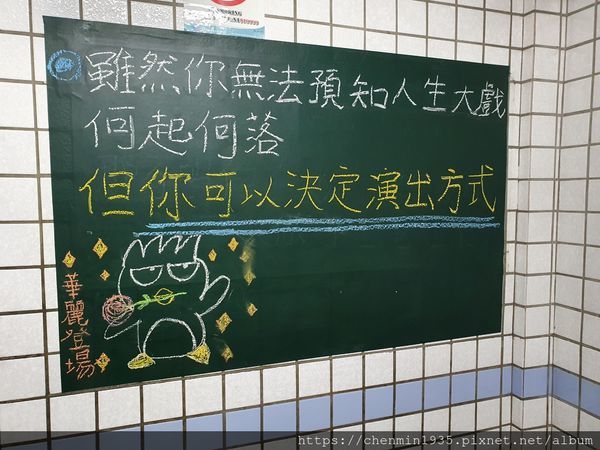 雖然你無法預知人生大戲
何起何落
但你可以決定演出方式
華麗登場
https://chenmin1935.pixnet.net/album